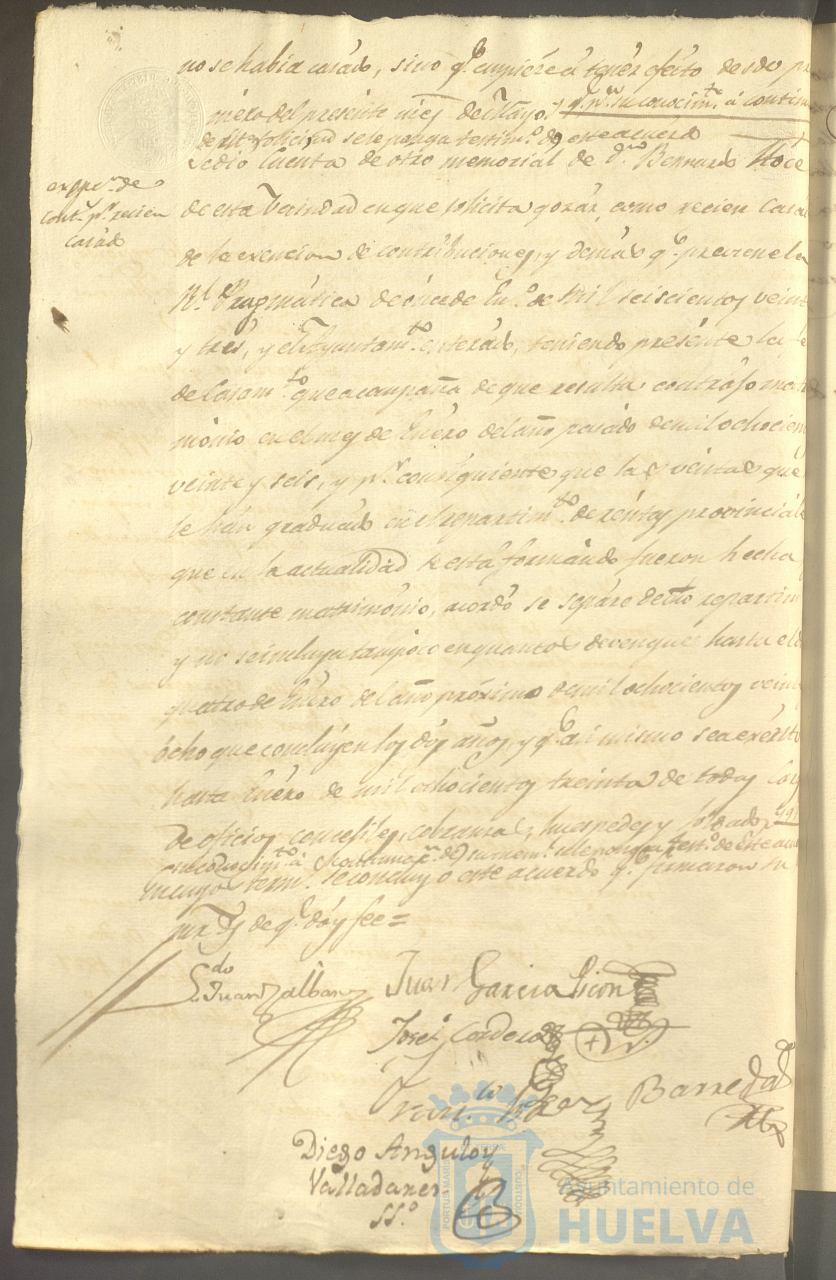 no se habia casado, sino q.e empiece á tener efecto desde pri
mero del presente mes de Mayo, y q.e p.a su conocim.to á contin
de dha solicitud se le ponga testim.o de este acuerdo
exppte. de
cont. p.r recien
casado
Se dio cuenta de otro memorial de D.n Bernardo
de esta Vecindad en que solicita gozar, como recien casa
de la exencion de contribuciones, y demas q.e previene la
R.l Pragmática de once de En.o de mil seiscientos veint
y tres, y el Ayuntam.to enterado, teniendo presente la fe
de casam.to que acompaña de que resulta contrajo matri
mónio en el mes de Enero del año pasado de mil ochocien
veinte y seis, y p.r consiguiente que las ventas que
se han graduado en el repartim.to de rentas provinciale
que en la actualidad se está formando fueron hecha
constante matrimónio, acordó se separe de dho repartim
y no se incluya tampoco en quantos devengue hasta el
quatro de Enero del año próximo de mil ochocientos veint
ócho que concluyen los dós años, y q.e asi mismo sea exénto
hasta Enero de mil ochocientos treinta de todas las
de oficios concejiles, cobranzas, huespedes y soldados, y q.e p.a
su conocim.to á continuaz.on de su mem.l se le ponga test.o de este acu
En cuyos term.s se concluyó este acuerdo q.e firmaron su
mrz.ds de q.e doy fee=
L.do Juan Zalbany
Juan Garcia
José Cordero
Fran.co
Barreda
Diego Angulo y
Valladares
SS.o
Ayuntamiento de
HUELVA